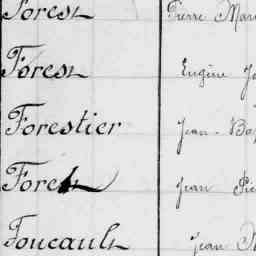 Forest Pierre Mar
Forest Eugène J
Forestier Jean-Ba
Foret Jean Pie
Foucault Jean